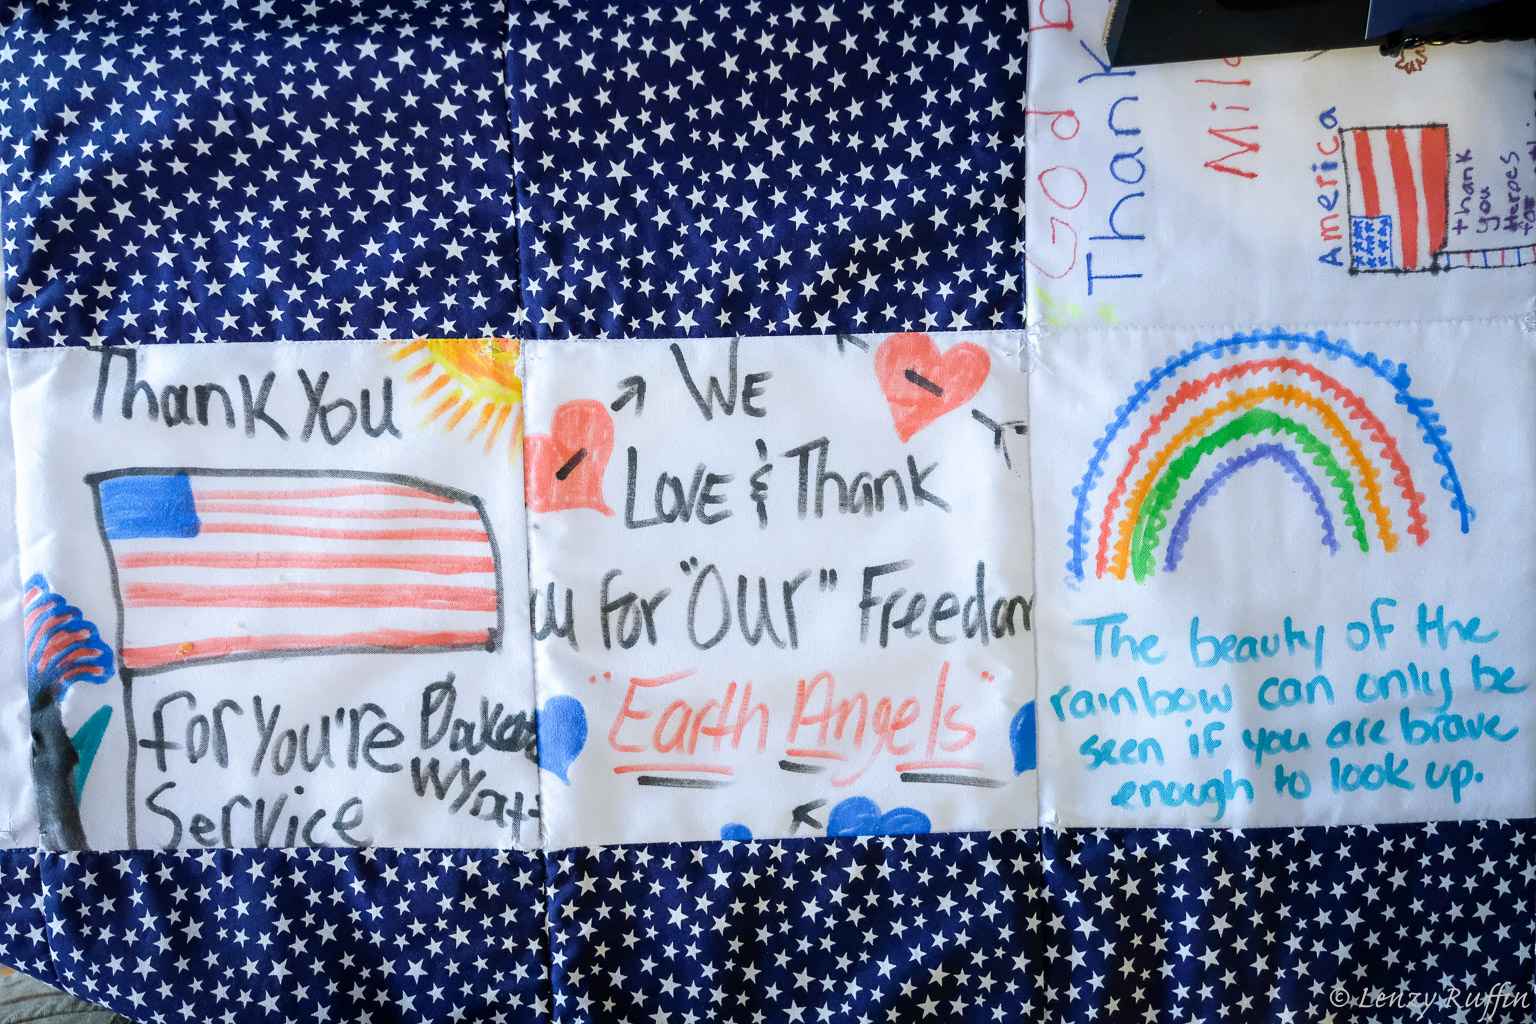 God b
Thank
Mil
America
thank
you
Heroes
for
Thank You
For You're
Service
Dakota
Wyatt
WE
LOVE & Thank
u For "Our" Freedom
"Earth Angels"
The beauty of the
rainbow can only be
seen if you are brave
enough to look up.
© Lenzy Ruffin